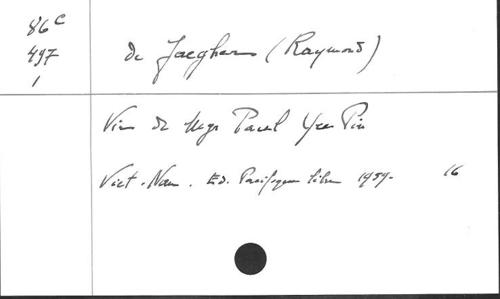 86C
497
1
de Jaegher (Raymond)
Vie de Mgr Paul Yu Pin
Viet-Nam. Ed. Pacifique libre 1959. 16